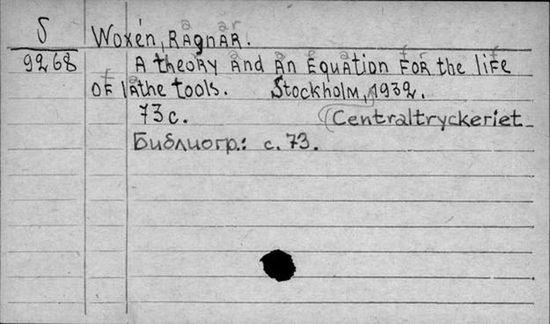 5 Woxén, Ragnar.
9268 A theory and an equation for the life
of lathe tools. Stockholm, 1932.
73 с. (Centraltryckeriet
Библиогр.: с. 73.